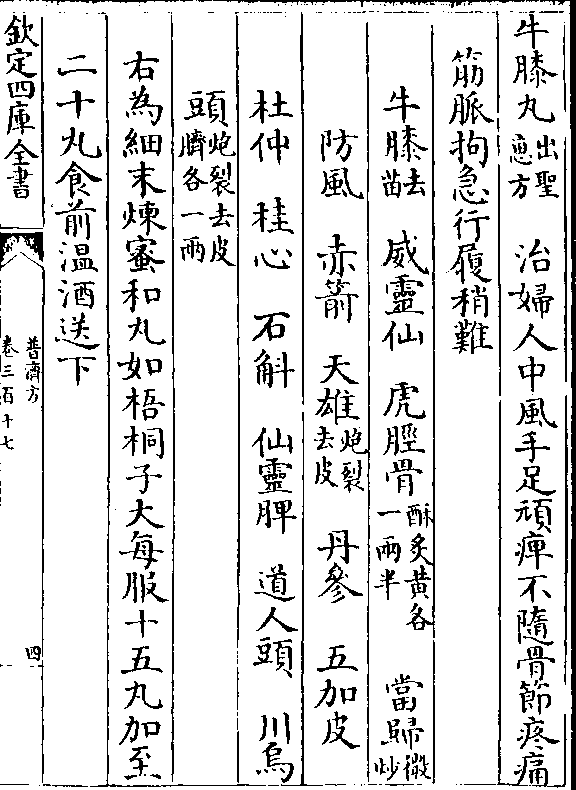 牛膝丸出聖惠方　治婦人中風手足頑痺不隨骨節疼痛
筋脈拘急行履稍難
牛膝去苗　威靈仙　虎脛骨酥炙黄各一兩半　當歸微炒
防風　赤箭　天雄炮裂去皮　丹參　五加皮
杜仲　桂心　石斛　仙靈脾　道人頭　川烏
頭炮裂去皮臍各一兩
右為細末煉蜜和丸如梧桐子大每服十五丸加至
二十丸食前温酒送下
欽定四庫全書
普濟方
卷三百十七
四